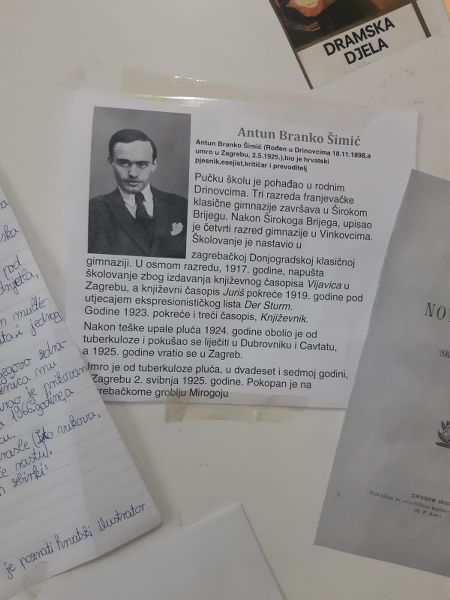 DRAMSKA
DJELA
Antun Branko Šimić
Antun Branko Šimić (Rođen u Drinovcima 18.11.1898,a
umro u Zagrebu, 2.5.1925.),bio je hrvatski
pjesnik,esejist,kritičar i prevoditelj
Pučku školu je pohađao u rodnim
Drinovcima. Tri razreda franjevačke
klasične gimnazije završava u Širokom
Brijegu. Nakon Širokoga Brijega, upisao
je četvrti razred gimnazije u Vinkovcima.
Školovanje je nastavio u
zagrebačkoj Donjogradskoj klasičnoj
gimnaziji. U osmom razredu, 1917. godine, napušta
školovanje zbog izdavanja književnog časopisa Vijavica u
Zagrebu, a književni časopis Juriš pokreće 1919. godine pod
utjecajem ekspresionističkog lista Der Sturm.
Godine 1923. pokreće i treći časopis, Književnik.
Nakon teške upale pluća 1924. godine obolio je od
tuberkuloze i pokušao se liječiti u Dubrovniku i Cavtatu,
a 1925. godine vratio se u Zagreb.
Umro je od tuberkuloze pluća, u dvadeset i sedmoj godini,
Zagrebu 2. svibnja 1925. godine. Pokopan je na
grebačkome groblju Mirogoju
rod
i jednog
mu
je
1966. godine
rukova.
zbirki:
je poznati hrvatski ilustrator
NO
ZAGREB